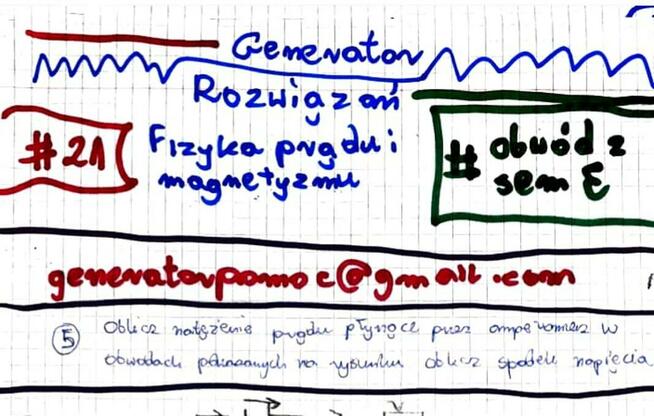 Generator
Rozwiązań
# 21
Fizyka prądu i
magnetyzmu
# obwód z
sem ε
generatorpomoc@gmail.com
5 Oblicz natężenie prądu płynące przez amperomierz w
obwodach pokazanych na rysunku oblicz spadek napięcia
V